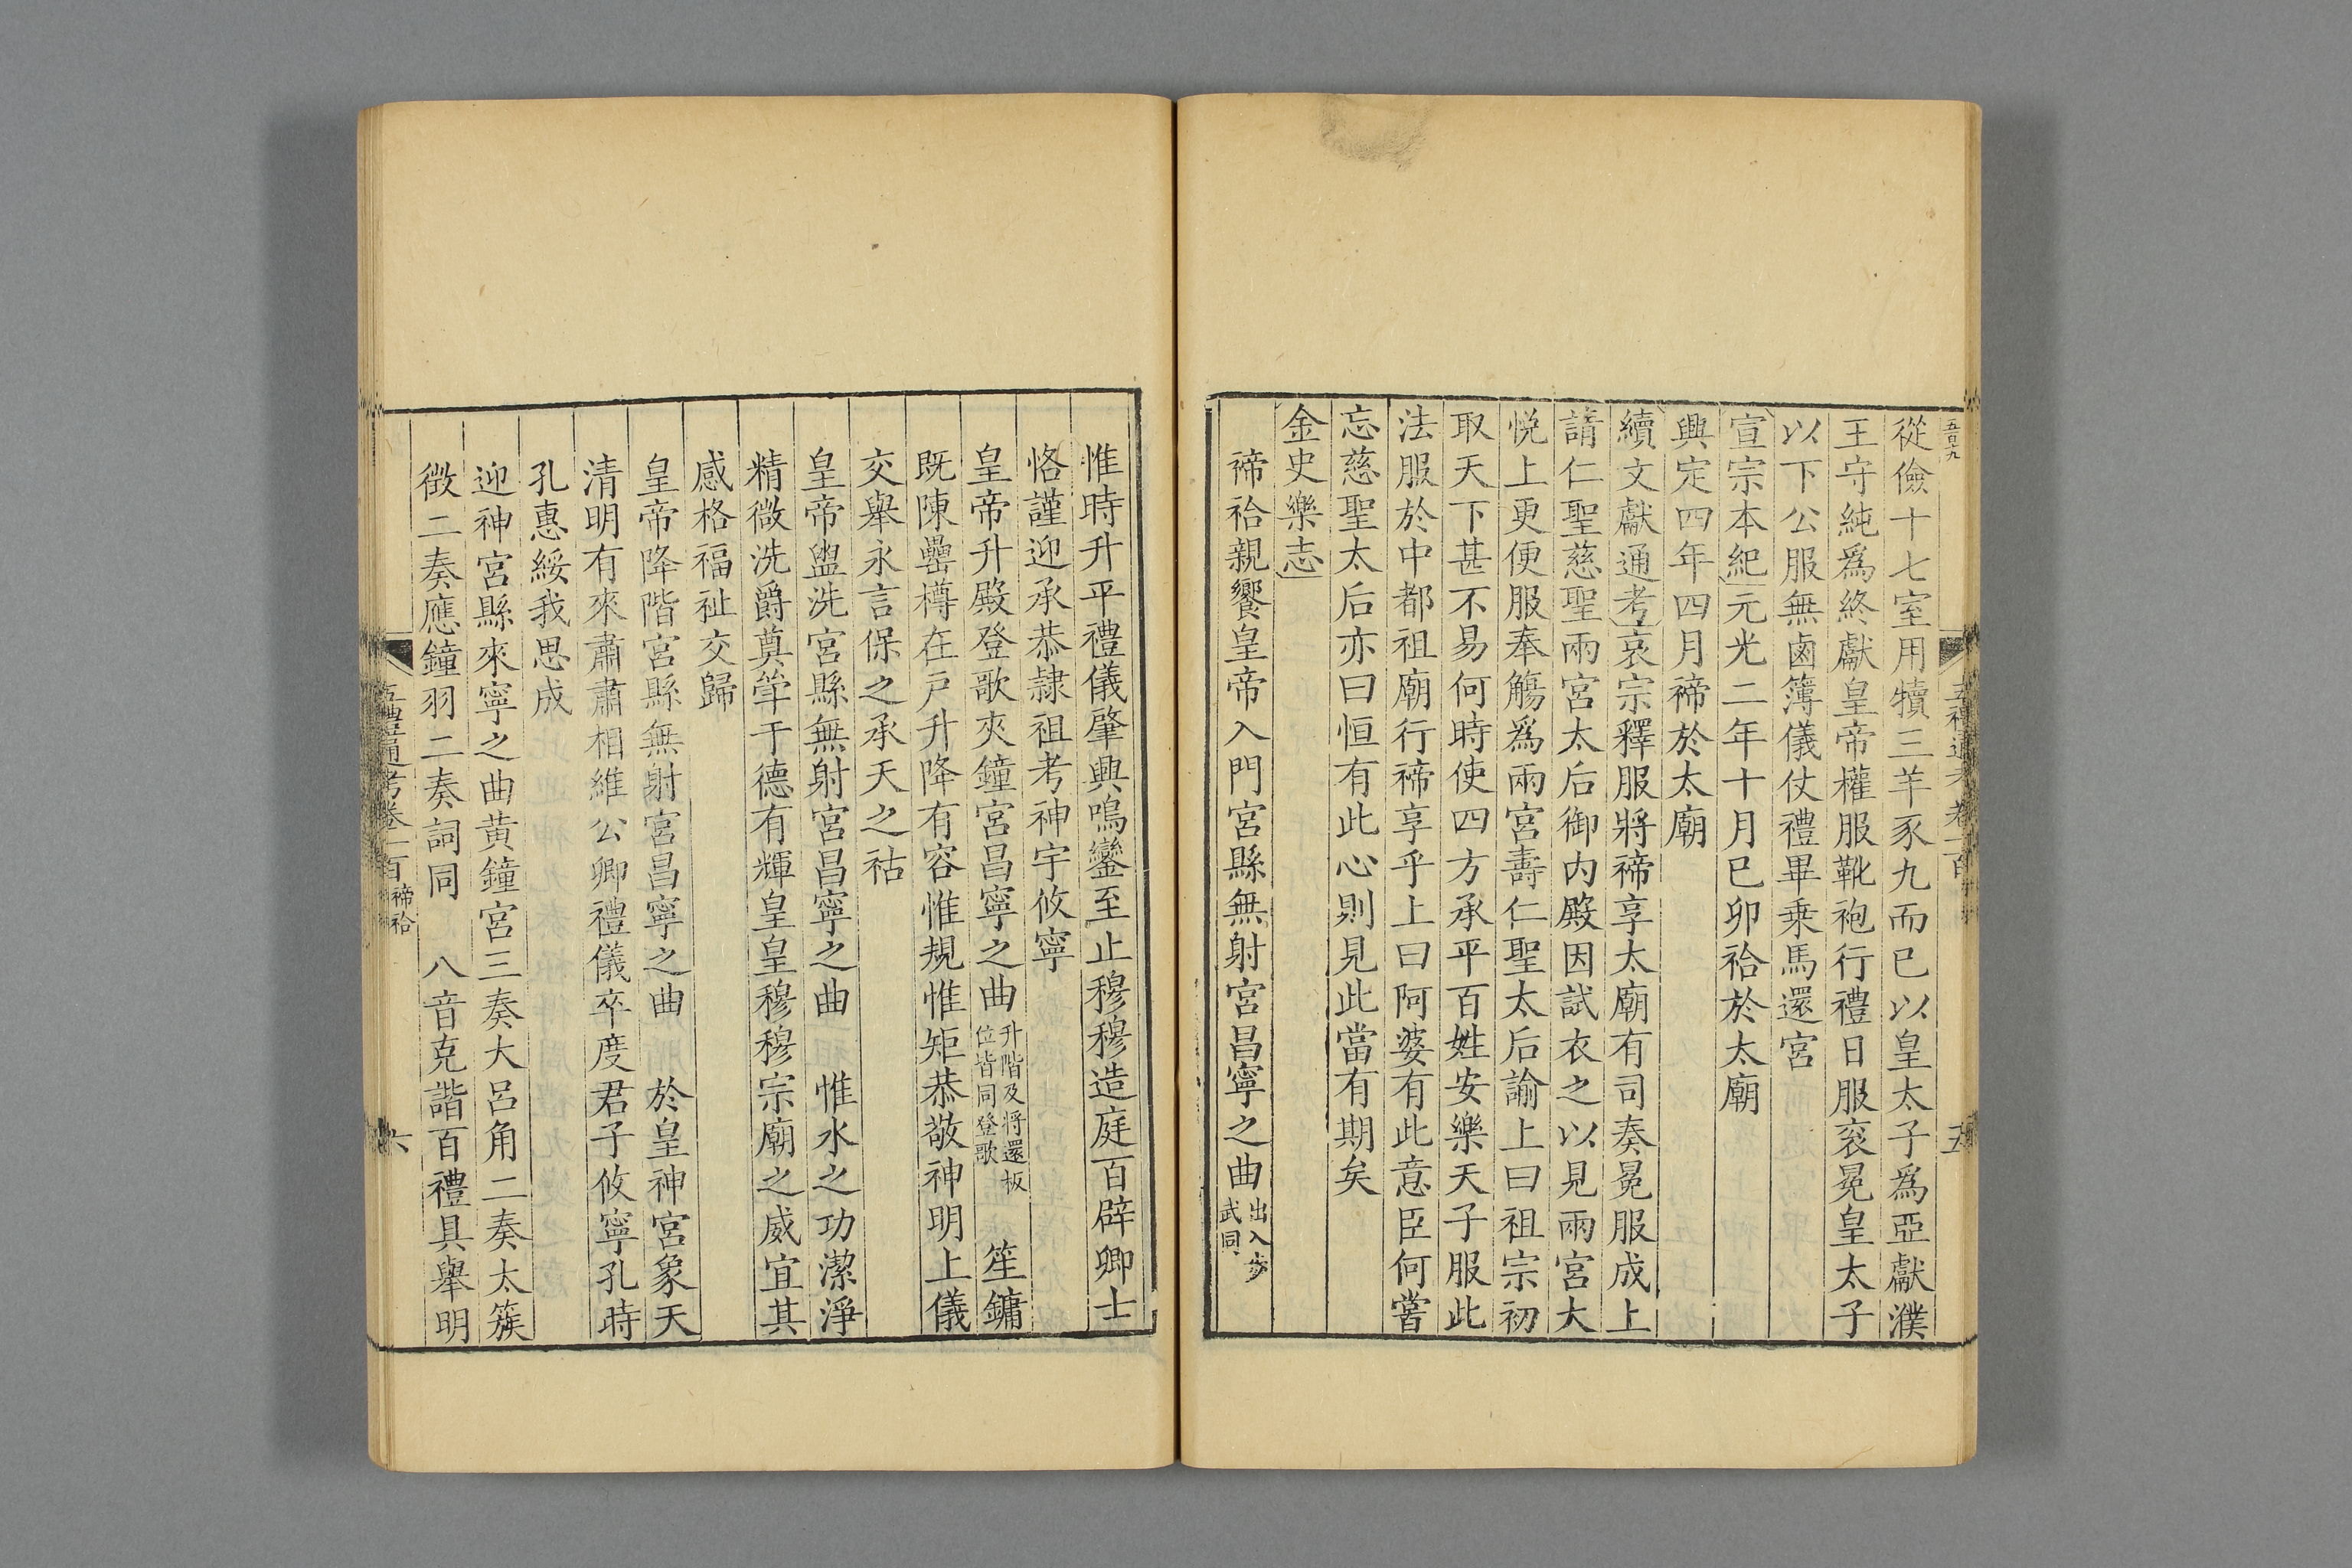 五百九
五禮通考卷一百
五
從儉十七室用犢三羊豕九而已以皇太子爲亞獻濮
王守純爲終獻皇帝權服靴袍行禮日服衮冕皇太子
以下公服無鹵簿儀仗禮畢乗馬還宮
宣宗本紀元光二年十月巳卯祫於太廟
興定四年四月禘於太廟
續文獻通考哀宗釋服將禘享太廟有司奏冕服成上
請仁聖慈聖兩宮太后御内殿因試衣之以見兩宮大
悦上更便服奉觴爲兩宮壽仁聖太后諭上曰祖宗初
取天下甚不易何時使四方承平百姓安樂天子服此
法服於中都祖廟行禘享乎上曰阿婆有此意臣何嘗
忘慈聖太后亦曰恒有此心則見此當有期矣
金史樂志
禘祫親饗皇帝入門宮縣無射宮昌寧之曲出入步
武同
惟時升平禮儀肇興鳴鑾至止穆穆造庭百辟卿士
恪謹迎承恭隷祖考神宇攸寧
皇帝升殿登歌夾鐘宮昌寧之曲升階及將還板
位皆同登歌 笙鏞
既陳罍樽在戸升降有容惟規惟矩恭敬神明上儀
交舉永言保之承天之祜
皇帝盥洗宮縣無射宮昌寧之曲 惟水之功潔淨
精微洗爵奠斚于德有輝皇皇穆穆宗廟之威宜其
感格福祉交歸
皇帝降階宮縣無射宮昌寧之曲 於皇神宮象天
清明有來肅肅相維公卿禮儀卒度君子攸寧孔時
孔惠綏我思成
迎神宮縣來寧之曲黃鐘宮三奏大呂角二奏太簇
徵二奏應鐘羽二奏詞同 八音克諧百禮具舉明
五禮通考卷一百 禘祫
六